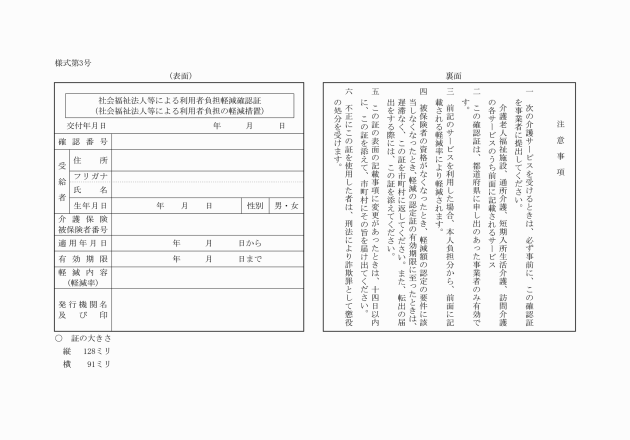 様式第3号
(表面)
社会福祉法人等による利用者負担軽減確認証
(社会福祉法人等による利用者負担の軽減措置)
交付年月日 年 月 日
確認番号
受給者
住所
フリガナ
氏名
生年月日 年 月 日 性別 男・女
介護保険
被保険者番号
適用年月日 年 月 日から
有効期限 年 月 日まで
軽減内容
(軽減率)
発行機関名
及び印
○ 証の大きさ
縦 128ミリ
横 91ミリ
裏面
注意事項
一 次の介護サービスを受けるときは、必ず事前に、この確認証
を事業者に提出してください。
介護老人福祉施設、通所介護、短期入所生活介護、訪問介護
の各サービスのうち前面に記載されるサービス
二 この確認証は、都道府県に申し出のあった事業者のみ有効で
す。
三 前記のサービスを利用した場合、本人負担分から、前面に記
載される軽減率により軽減されます。
四 被保険者の資格がなくなったとき、軽減額の認定の要件に該
当しなくなったとき、軽減の認定証の有効期限に至ったときは、
遅滞なく、この証を市町村に返してください。また、転出の届
出をする際には、この証を添えてください。
五 この証の表面の記載事項に変更があったときは、十四日以内
に、この証を添えて、市町村にその旨を届け出てください。
六 不正にこの証を使用した者は、刑法により詐欺罪として懲役
の処分を受けます。